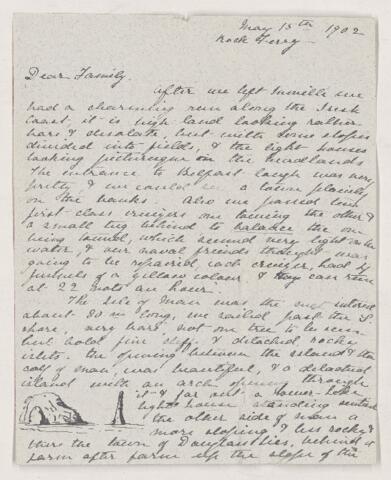 May 15th 1902
Rock Ferry
Dear Family.
After we left we
had a charming run along the Irish
Coast, it is high land looking rather
bare & desolate, but with some slopes
divided into fields, & the light houses
looking picturesque on the headlands
The entrance to Belfast Laugh was very
pretty, & we could see a town placed
on the banks. Also we passed two
first class cruizers one towing the other &
a small tug behind to balance the one
being towed, which seemed very light on the
water, & our naval friends thought was
going to be repaired each cruizer, had
funnels of a yellow colour & they can run
at 22 knots an hour.
The Isle of Man was the next
about 30 m long, we sailed past the S.
shore, very bare not one tree to be seen
but bold fine cliffs & detached rocky
islets. the opening between the island & the
calf of man, was beautiful, & a detached
island with an arch opening through
it & far out a tower-like
light house standing
the other side of man is
more sloping & less rocky &
there the town of Douglas lies, behind it
farm after farm up the slope of the